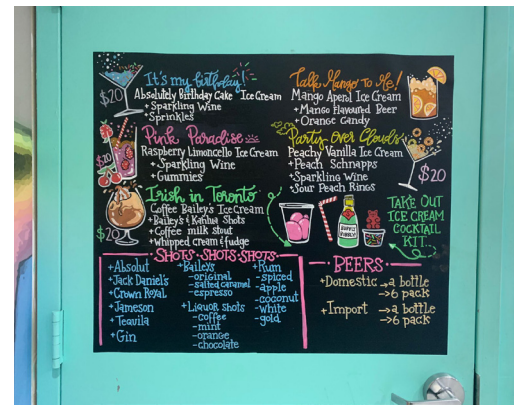 It's my birthday!
$20
Absolutely Birthday Cake Ice Cream
+ Sparkling Wine
+ Sprinkles
Pink Paradise
$20
Raspberry Limoncello Ice Cream
+ Sparkling Wine
+ Gummies
Irish in Toronto
$20
Coffee Bailey's Ice Cream
+ Bailey's & Kahlua Shots
+ Coffee milk stout
+ Whipped cream & fudge
Talk Mango To Me!
Mango Aperol Ice Cream
+ Mango Flavoured Beer
+ Orange Candy
Party Over Clouds
Peachy Vanilla Ice Cream
+ Peach Schnapps
+ Sparkling Wine
+ Sour Peach Rings
$20
TAKE OUT
ICE CREAM
COCKTAIL
KIT
SHOTS · SHOTS · SHOTS
+ Absolut
+ Jack Daniel's
+ Crown Royal
+ Jameson
+ Tequila
+ Gin
+ Baileys
- original
- salted caramel
- espresso
+ Liquor Shots
- coffee
- mint
- orange
- chocolate
+ Rum
- spiced
- apple
- coconut
- white
- gold
· BEERS ·
+ Domestic → a bottle
→ 6 pack
+ Import → a bottle
→ 6 pack